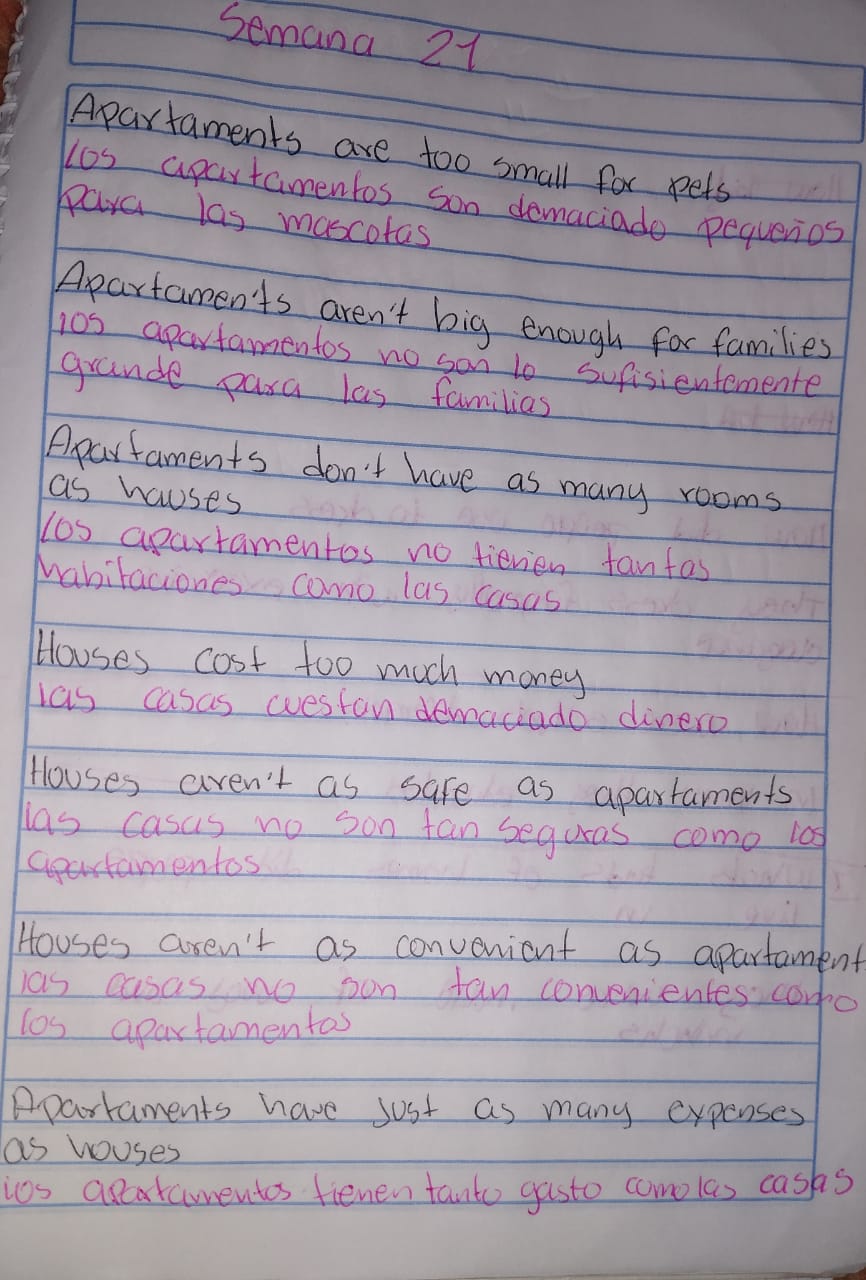 Semana 21
Apartaments are too small for pets
los apartamentos son demaciado pequeños
para las mascotas
Apartaments aren't big enough for families
los apartamentos no son lo sufisientemente
grande para las familias
Apartaments don't have as many rooms
as hauses
los apartamentos no tienen tantas
habitaciones como las casas
Houses cost too much money
las casas cuestan demaciado dinero
Houses aren't as safe as apartaments
las casas no son tan seguras como los
apartamentos
Houses aren't as convenient as apartament
las casas no son tan convenientes como
los apartamentos
Apartaments have just as many expenses
as houses
los apartamentos tienen tanto gasto como las casas